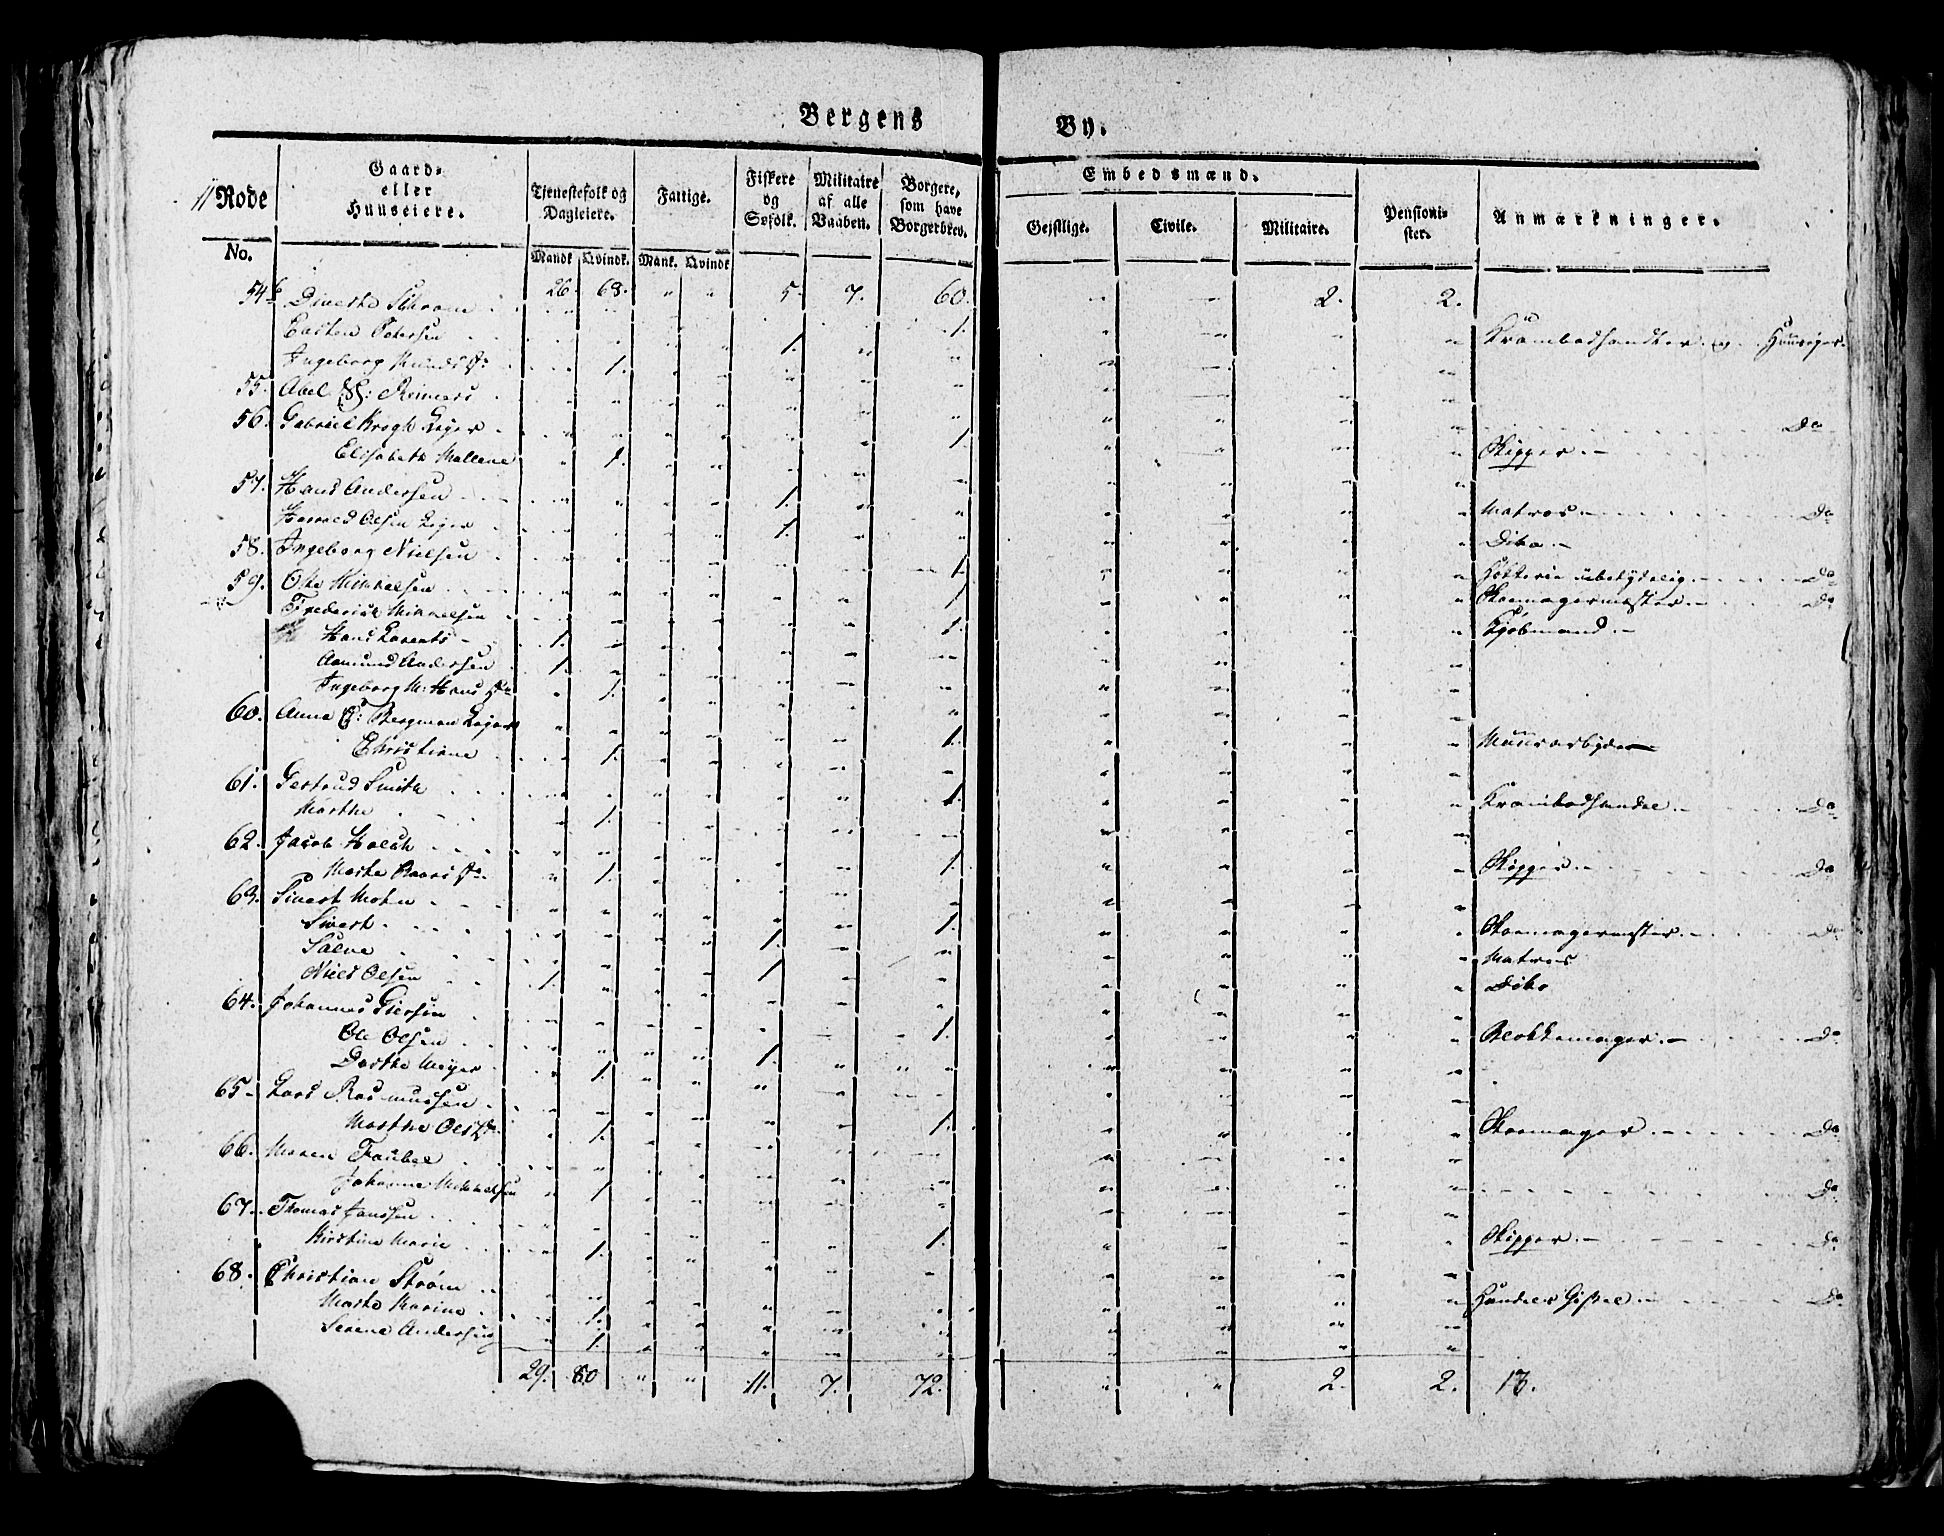 Bergens By.
11 Rode
No.
Gaard-
eller
Huuseiere.
Tjenestefolk og
Dagleiere.
Mandk. Qvindk.
Fattige.
Mank. Qvindk
Fiskere
og
Søfolk.
Militaire
af alle
Vaaben.
Borgere,
som have
Borgerbrev.
Embedsmænd.
Gejstlige. Civile. Militaire.
Pensioni-
ster.
Anmærkninger.
54 b 26. 63. " " 5. 7. 60. " " 2. 2.
Petersen 1. Krambodhandler og Huuseier
Ingeborg 1. 1.
55. Abel Reimers
56. Gabriel Krogh Leyer 1. Do
Elisabeth Mallene 1. Skipper.
57. Hans Andersen 1. Matros Do
Olsen Leyer 1. Dito
58. Ingeborg Nielsen 1. ubetydelig Do
59. Ole Mikkelsen 1. Skoemagermester Do
Frederick Mikkelsen 1. Kjøbmand
Hans Lorents 1.
Asmund Andersen 1.
Ingeborg M: Hans Dr 1.
60. Anna C: Bergman Leyer 1. Muurarbyder
Christiane 1.
61. Gertrud Smith 1. Krambodhandel Do
Marthe 1.
62. Jacob Holch 1. Skipper Do
Marthe 1.
63. Sivert 1. Skoemagermester Do
Sivert 1. Matros
Salve 1. Dito
Niels Olsen 1.
64. Johannes Giersen 1. Blokkemager Do
Ole Olsen 1.
Dorthe Meyer 1.
65. Lars Rasmussen 1. Skoemager Do
Marthe Olsdr 1.
66. Maren Taubel Do
Johanne Mikkelsen 1.
67. Thomas Janssen 1. Skipper Do
Kirstine Marie 1.
68. Christian Strøm Handels Do
Marthe Karine 1.
Serene Andersen 1.
29. 80 " " 11. 7. 72. " " 2. 2. 13.